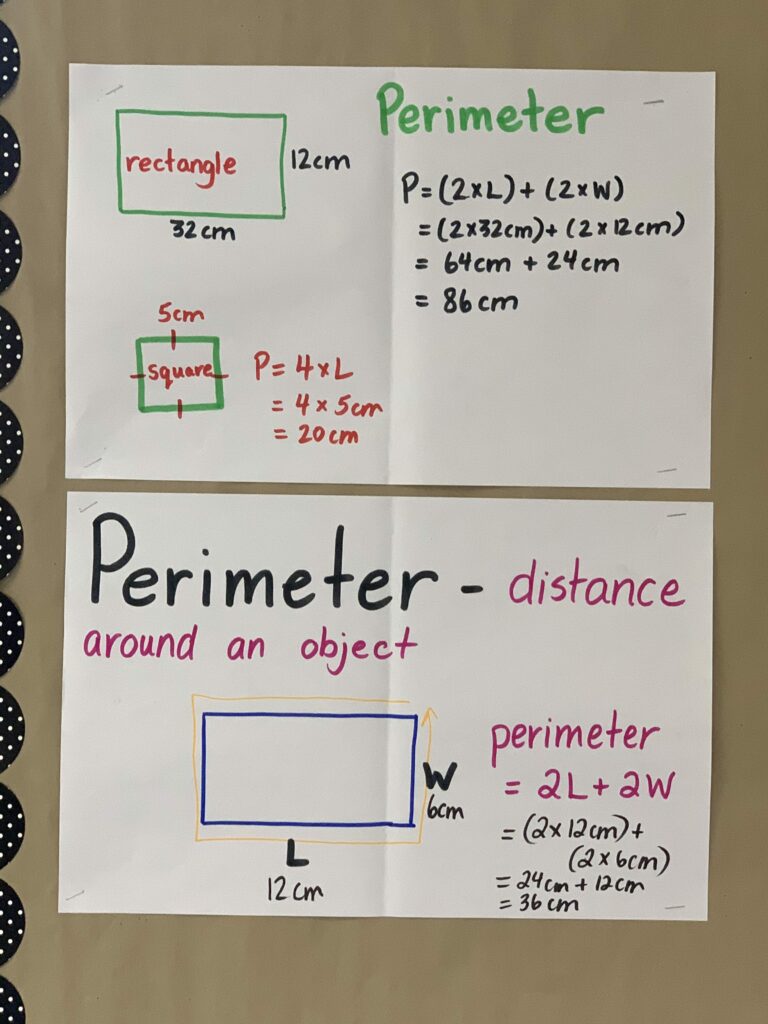 Perimeter
rectangle
12cm
32cm
P=(2×L)+(2×W)
=(2×32cm)+(2×12cm)
= 64cm + 24cm
= 86cm
5cm
square
P= 4×L
= 4×5cm
= 20cm
Perimeter - distance
around an object
W
6cm
L
12cm
perimeter
= 2L+2W
=(2×12cm)+
(2×6cm)
=24cm+12cm
=36cm